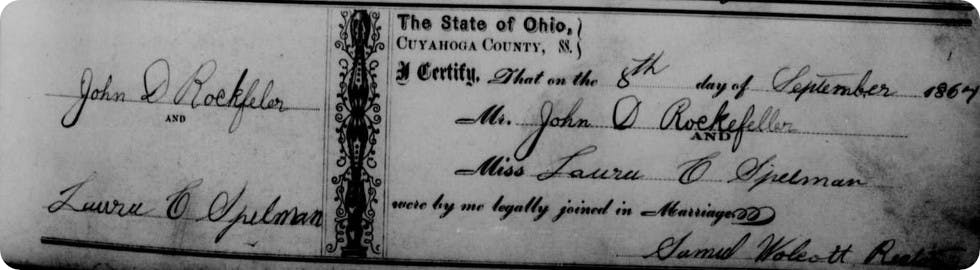 John D Rockfeler
AND
Laura C Spelman
The State of Ohio,
CUYAHOGA COUNTY, SS.
I Certify, That on the 8th day of September 1864
Mr. John D Rockefeller
AND
Miss Laura C Spelman
were by me legally joined in Marriage
Samul Wolcott